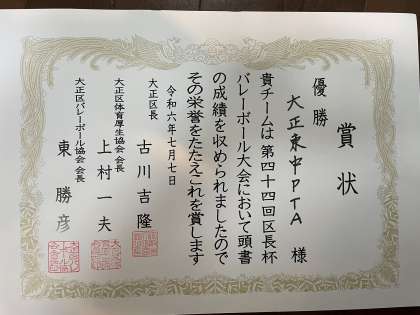 賞状
優勝
大正東中PTA 様
貴チームは第四十四回区長杯
バレーボール大会において頭書
の成績を収められましたので
その栄誉をたたえこれを賞します
令和六年七月七日
大正区長 古川吉隆
大正区体育厚生協会 会長 上村一夫
大正区バレーボール協会 会長 東勝彦